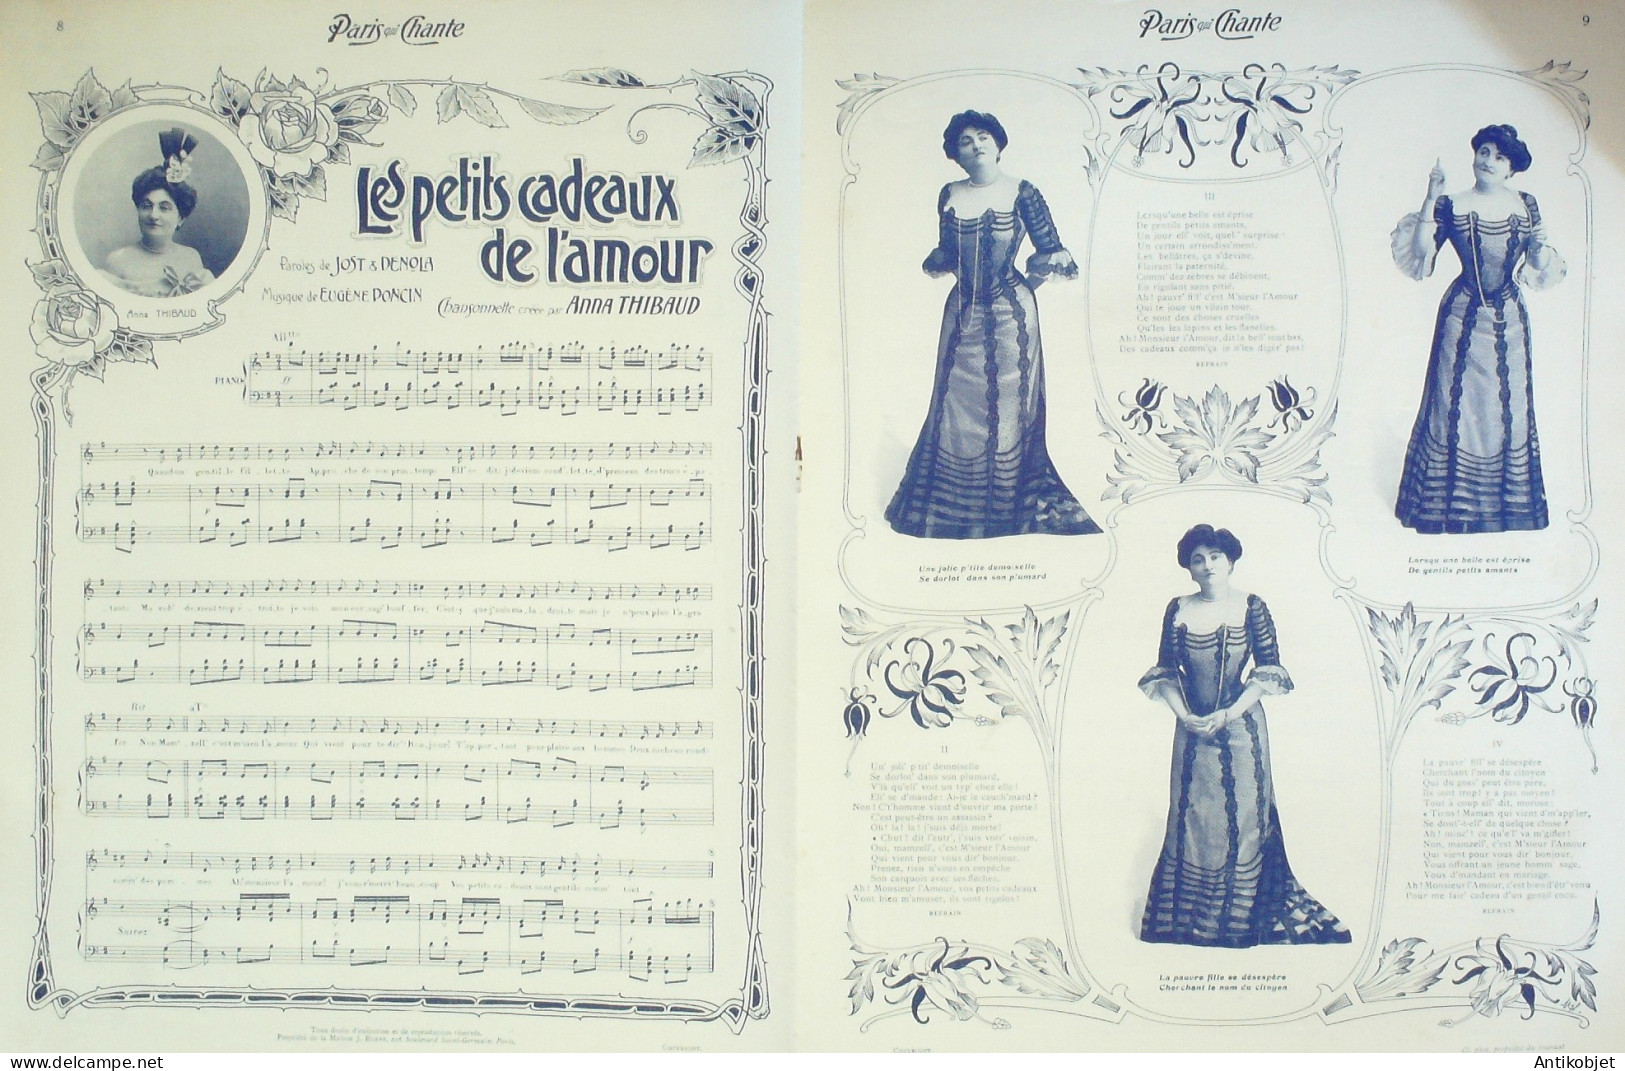 8
Paris qui Chante
Les petits cadeaux
de l'amour
Paroles de JOST & DENOLA
Musique de EUGÈNE PONCIN
Chansonnette créée par ANNA THIBAUD
Anna THIBAUD
All^tto
PIANO
ff
Quand un' gentil-le fil-let-te Ap-pro-che de son prin-temps Ell' se dit: j'deviens rond'-let-te, d'princess'
tant: Ma rob' devient trop é-troi-te je vois mon cor-sag' bouf-fer, C'est-y que j'suis ma-la-droi-te mais je n'peux plus l'a-gra-
fer Non Mam'-zell' c'est m'sieu l'a-mour Qui vient pour te dir' Bon-jour! T'ap-por-tant pour plaire aux hommes Deux
comm' des pom-mes. Ah! monsieur l'a-mour! j'vous r'merci' beau-coup Vos petits ca-deaux sont gentils comm' tout
Suivez
Tous droits d'exécution et de reproduction réservés.
Copyright.
Paris qui Chante
9
III
Lorsqu'une belle est éprise
De gentils petits amants,
Un jour ell' voit, quell' surprise!
Un certain arrondiss'ment.
Les bellâtres, ça s'devine,
Flairant la paternité,
Comm' dez zèbres se débinent,
En rigolant sans pitié.
Ah! pauvr' fill' c'est M'sieur l'Amour
Qui te joue un vilain tour,
Ce sont des choses cruelles
Qu'les les lapins et les flanelles.
Ah! Monsieur l'Amour, dit la bell' tout bas,
Des cadeaux comm'ça je n'les diger' pas!
REFRAIN
Une jolie p'tite demoiselle
Se dorlot' dans son plumard
Lorsqu'une belle est éprise
De gentils petits amants
II
Un' joli' p'tit' demoiselle
Se dorlot' dans son plumard,
V'là qu'ell' voit un typ' chez elle!
Ell' se d'mande: Ai-je le cauch'mard?
Non! C't'homme vient d'ouvrir ma porte!
C'est peut-être un assassin?
Oh! la! la! j'suis déjà morte!
« Chut! dit l'autr', j'suis votr' voisin,
Oui, mamzell', c'est M'sieur l'Amour
Qui vient pour vous dir' bonjour,
Prenez, rien n'vous en empêche
Son carquois avec ses flèches.
Ah! Monsieur l'Amour, vos petits cadeaux
Vont bien m'amuser, ils sont rigolos!
REFRAIN
IV
La pauvr' fill' se désespère
Cherchant l'nom du citoyen
Qui du goss' peut être père,
Ils sont trop! y a pas moyen!
Tout à coup ell' dit, morose:
« Tiens! Maman qui vient d'm'app'ler,
Se dout'-t-ell' de quelque chose?
Ah! minc'! ce qu'ell' va m'gifler!
Non, mamzell', c'est M'sieur l'Amour
Qui vient pour vous dir' bonjour,
Vous offrant un jeune homm' sage,
Vous d'mandant en mariage.
Ah! Monsieur l'Amour, c'est bien d'êtr' venu
Pour me fair' cadeau d'un gentil cocu.
REFRAIN
La pauvre fille se désespère
Cherchant le nom du citoyen
Copyright.
Antikobjet